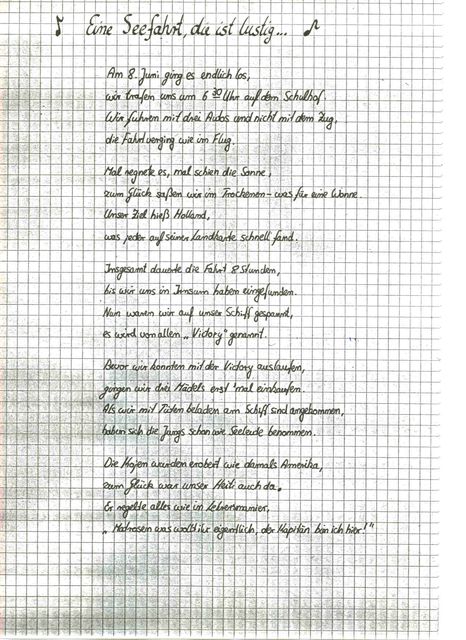 Eine Seefahrt, die ist lustig...
Am 8. Juni ging es endlich los,
wir trafen uns um 6 30 Uhr auf dem Schulhof.
Wir fuhren mit drei Autos und nicht mit dem Zug,
die Fahrt verging wie im Flug.
Mal regnete es, mal schien die Sonne,
zum Glück saßen wir im Trockenen - was für eine Wonne.
Unser Ziel hieß Holland,
was jeder auf seiner Landkarte schnell fand.
Insgesamt dauerte die Fahrt 8 Stunden,
bis wir uns in Irnsum haben eingefunden.
Nun waren wir auf unser Schiff gespannt,
es wird von allen „Victory" genannt.
Bevor wir konnten mit der Victory auslaufen,
gingen wir drei Mädels erst 'mal einkaufen.
Als wir mit Tüten beladen am Schiff sind angekommen,
haben sich die Jungs schon wie Seeleute benommen.
Die Kojen wurden erobert wie damals Amerika,
zum Glück war unser Heiti auch da.
Er regelte alles wie in Lehrersmanier,
„Matrosen was wollt ihr eigentlich, der Kapitän bin ich hier!"